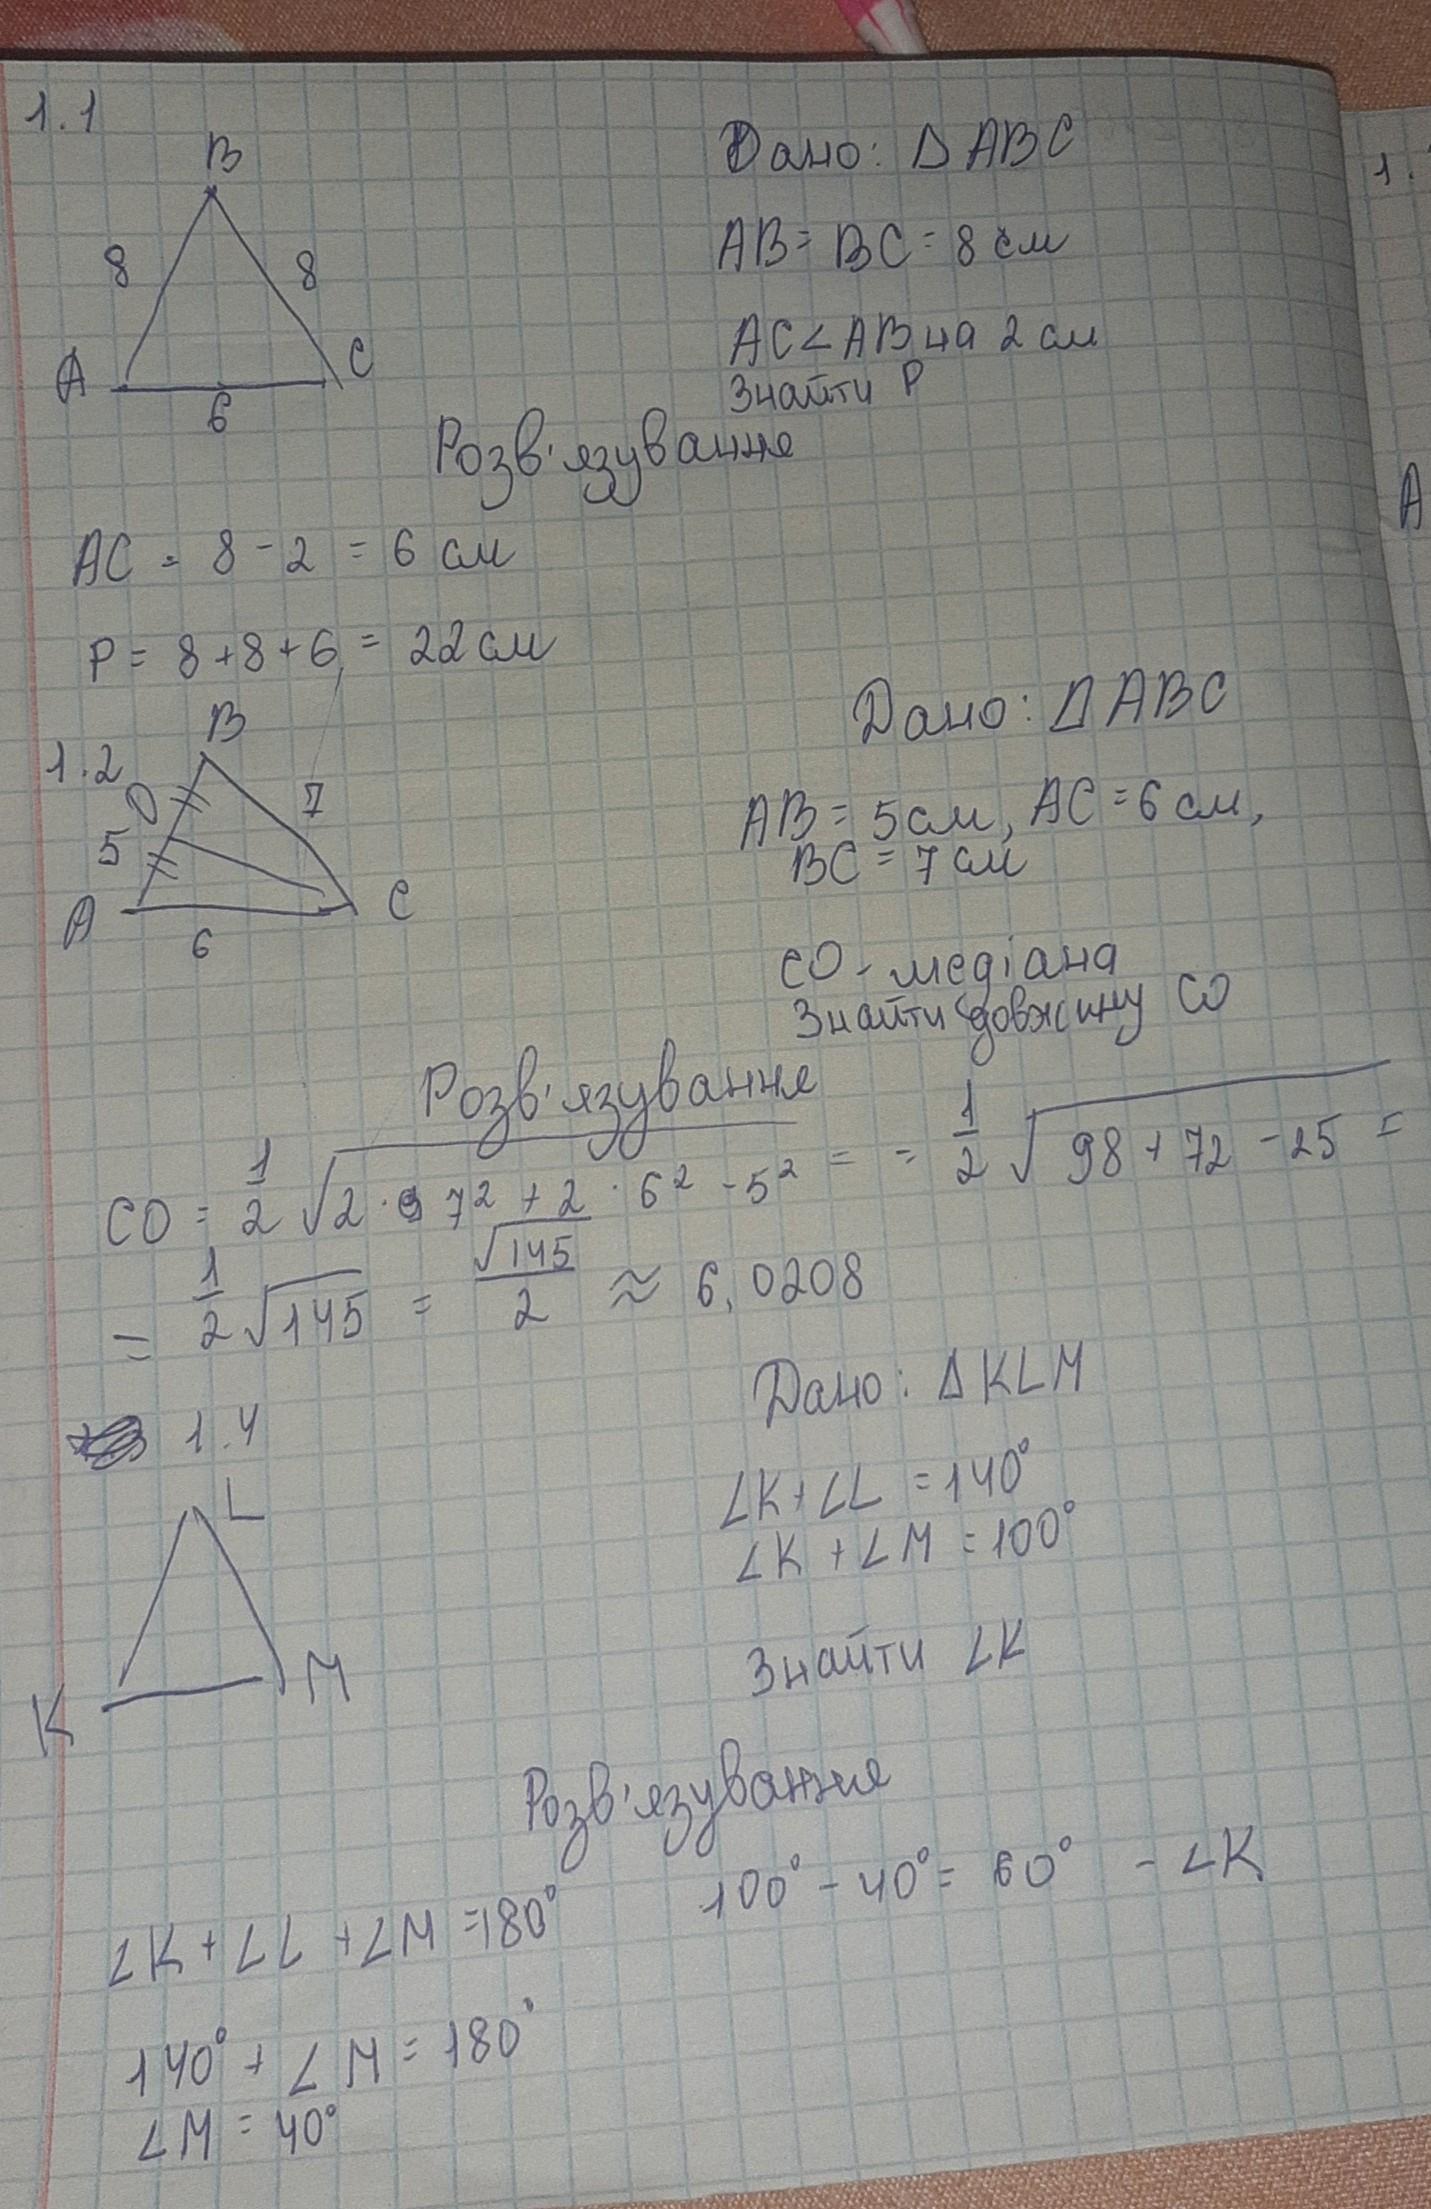 1.1
B
8 8
A C
6
Дано: △ABC
AB = BC = 8 см
AC < AB на 2 см
Знайти P
Розв'язування
AC = 8 - 2 = 6 см
P = 8 + 8 + 6 = 22 см
1.2
B
O 7
5
A C
6
Дано: △ABC
AB = 5 см, AC = 6 см,
BC = 7 см
CO - медіана
Знайти довжину CO
Розв'язування
CO = 1/2 √(2 · 7² + 2 · 6² - 5²) = = 1/2 √(98 + 72 - 25) =
= 1/2 √145 = √145/2 ≈ 6,0208
1.4
L
K M
Дано: △KLM
∠K + ∠L = 140°
∠K + ∠M = 100°
Знайти ∠K
Розв'язування
∠K + ∠L + ∠M = 180°
140° + ∠M = 180°
∠M = 40°
100° - 40° = 60° - ∠K
1.
A